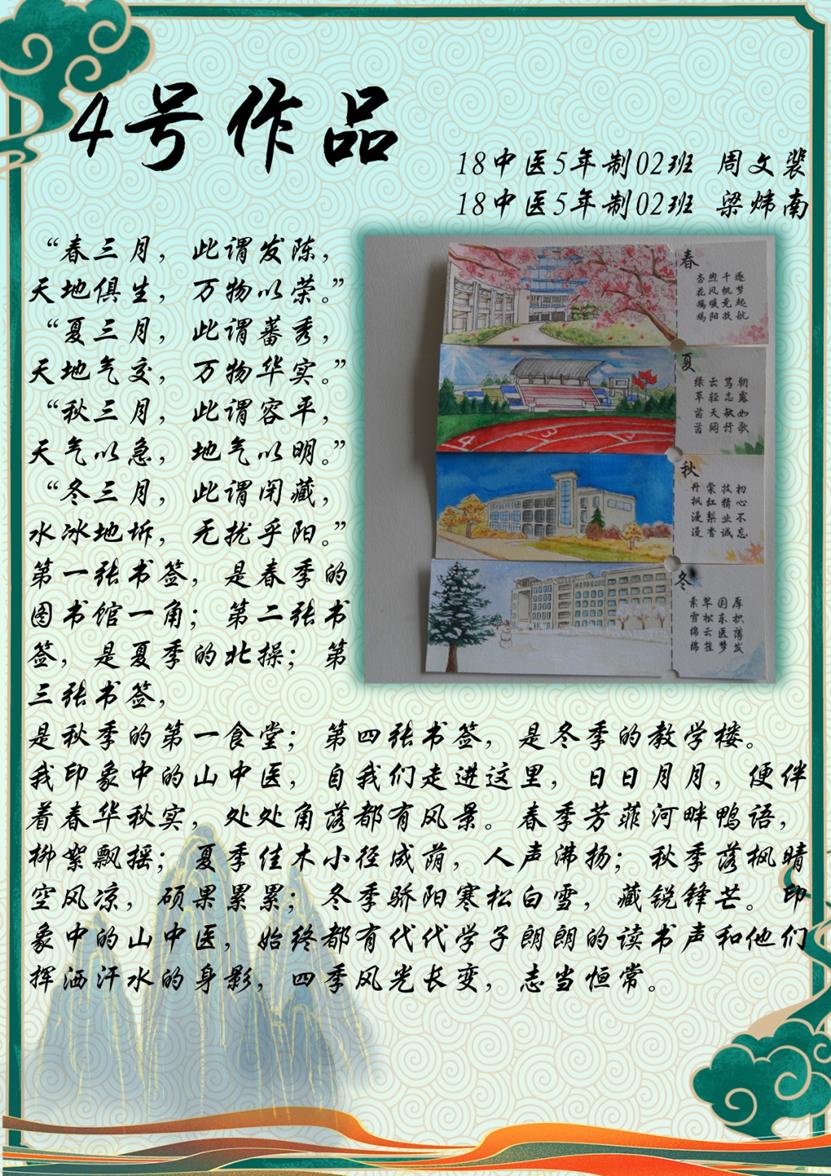 4号作品
18中医5年制02班 周文裴
18中医5年制02班 梁炜南
“春三月，此谓发陈，
天地俱生，万物以荣。”
“夏三月，此谓蕃秀，
天地气交，万物华实。”
“秋三月，此谓容平，
天气以急，地气以明。”
“冬三月，此谓闭藏，
水冰地坼，无扰乎阳。”
第一张书签，是春季的
图书馆一角；第二张书
签，是夏季的北操；第
三张书签，
是秋季的第一食堂；第四张书签，是冬季的教学楼。
我印象中的山中医，自我们走进这里，日日月月，便伴
着春华秋实，处处角落都有风景。春季芳菲河畔鸭语，
柳絮飘摇；夏季佳木小径成荫，人声沸扬；秋季落枫晴
空风凉，硕果累累；冬季骄阳寒松白雪，藏锐锋芒。印
象中的山中医，始终都有代代学子朗朗的读书声和他们
挥洒汗水的身影，四季风光长变，志当恒常。
春
逐梦起航
千帆竞技
煦风暖阳
杏花嫣嫣
夏
朝露如歌
笃志敏行
云轻天阔
绿草茵茵
秋
初心不忘
技精业诚
棠红梨香
丹枫漫漫
冬
厚积薄发
国医梦
翠松云挂
素雪绵绵
4
3
1